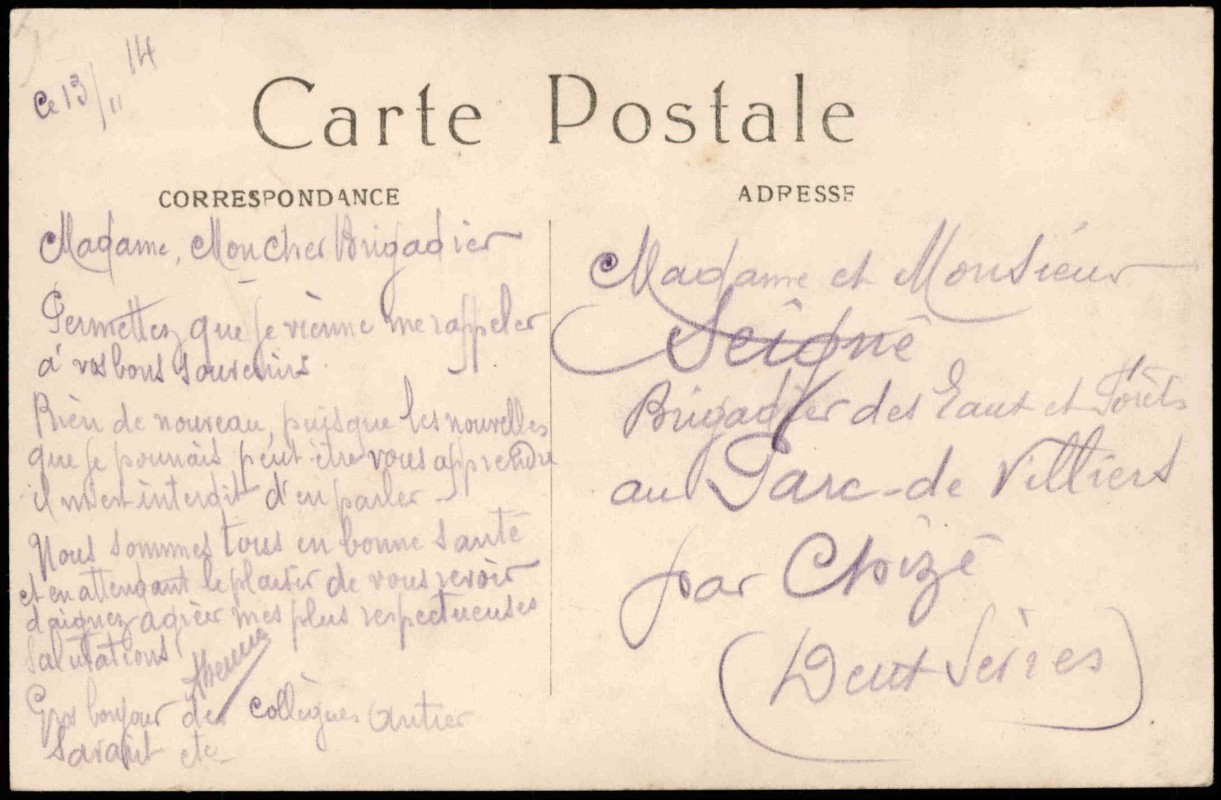 Ce 13/11 14
Carte Postale
CORRESPONDANCE
Madame, Mon cher Brigadier
Permettez que je vienne me rappeler
à vos bons souvenirs.
Rien de nouveau, puisque les nouvelles
que je pourrais peut-être vous apprendre
il m'est interdit d'en parler -
Nous sommes tous en bonne santé
et en attendant le plaisir de vous revoir
daignez agréer mes plus respectueuses
salutations
Gros bonjour des collègues Antier
Savarit etc -
ADRESSE
Madame et Monsieur
Seigné
Brigadier des Eaux et Forêts
au Parc-de Villiers
par Chizé
(Deux Sèvres)